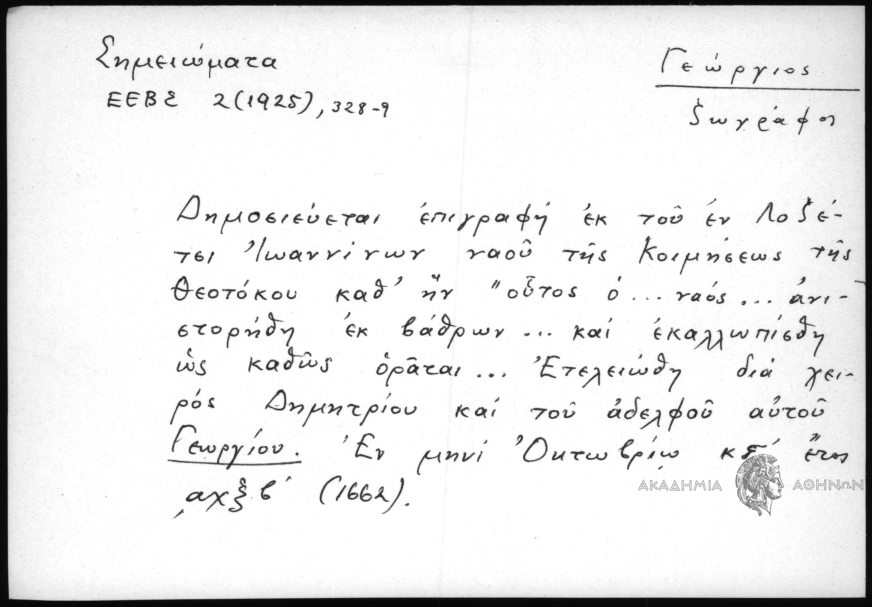 Σημειώματα
ΕΕΒΣ 2(1925), 328-9
Γεώργιος
ζωγράφος
Δημοσιεύεται ἐπιγραφή ἐκ τοῦ ἐν Λοζέ-
τσι Ἰωαννίνων ναοῦ τῆς Κοιμήσεως τῆς
Θεοτόκου καθ' ἥν "οὗτος ὁ... ναός... ἀνι-
στορήθη ἐκ βάθρων... καί ἐκαλλωπίσθη
ὡς καθὼς ὁρᾶται... Ἐτελειώθη διά χει-
ρός Δημητρίου καί τοῦ ἀδελφοῦ αὐτοῦ
Γεωργίου. Ἐν μηνί Ὀκτωβρίῳ ἔτος
͵αχξβ' (1662).
ΑΚΑΔΗΜΙΑ ΑΘΗΝΩΝ